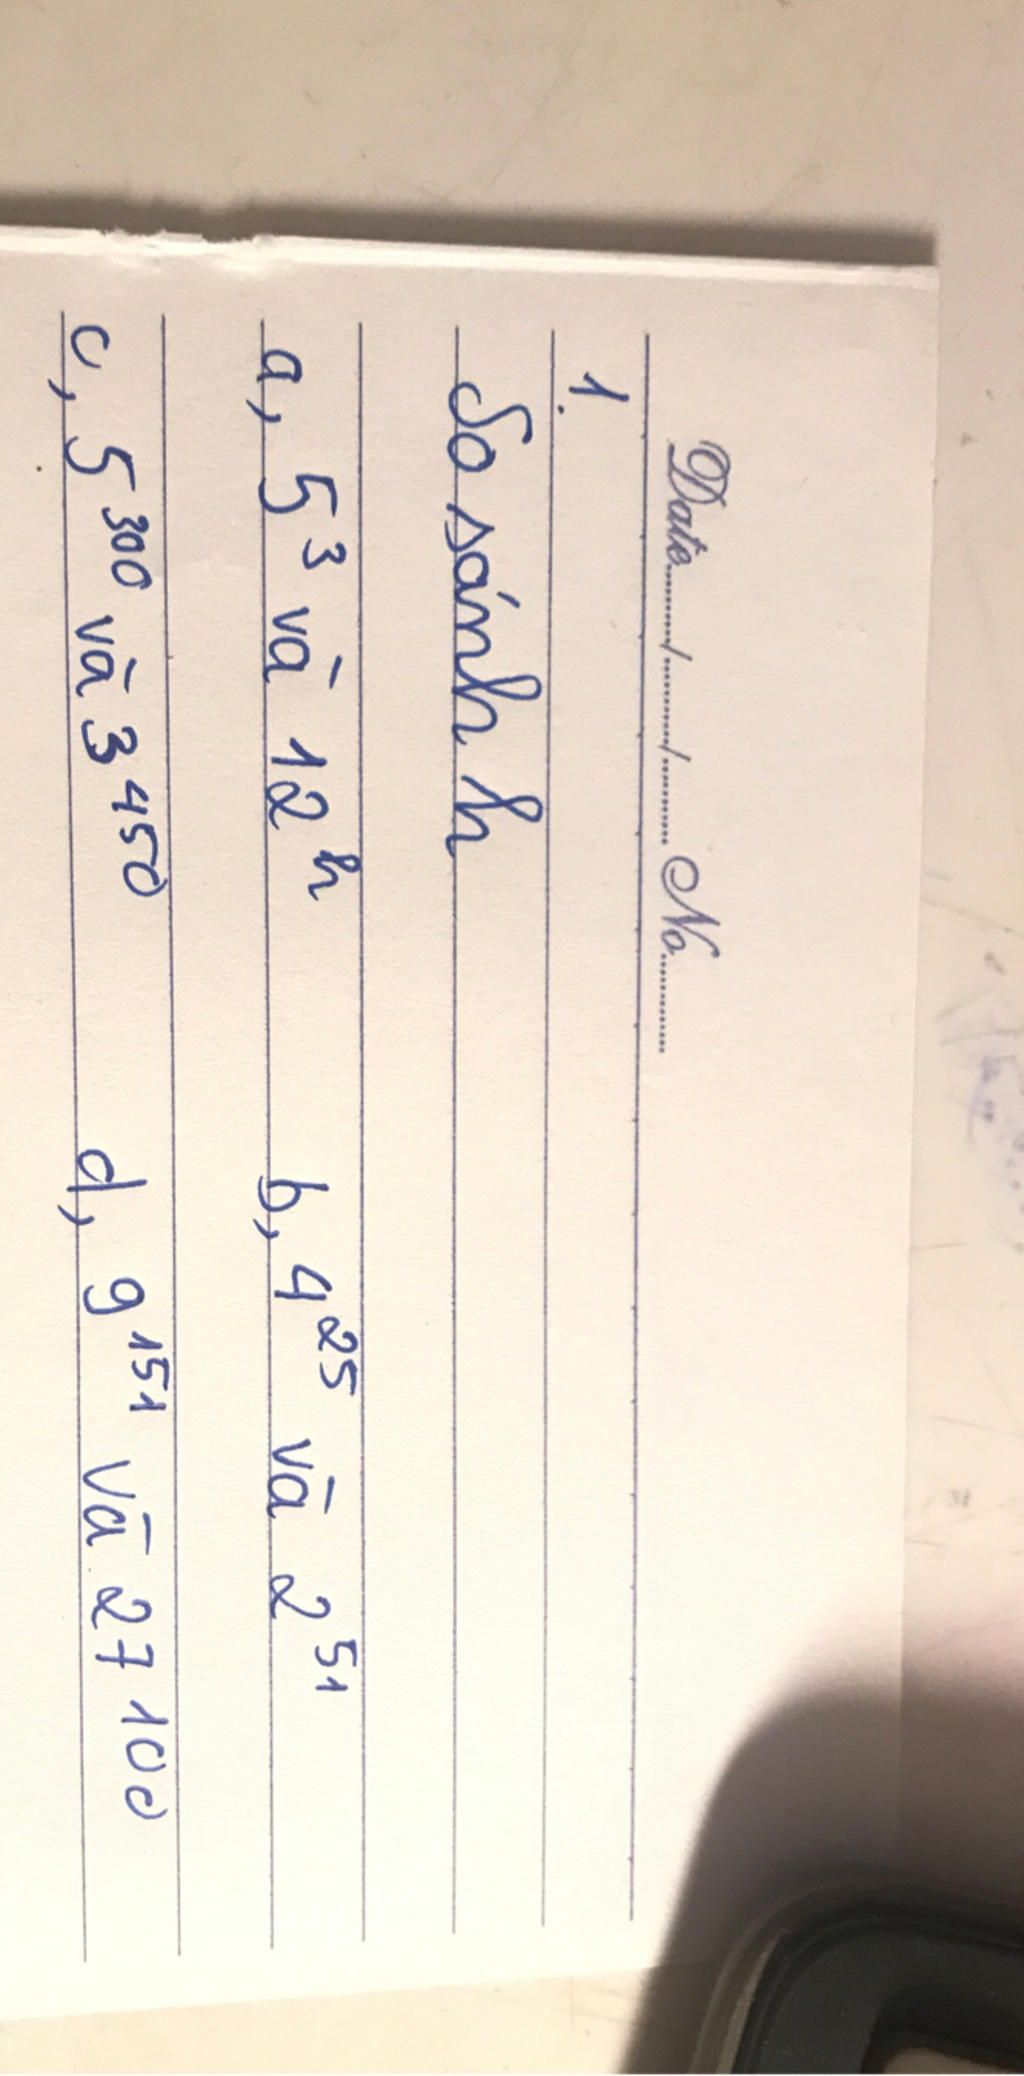 Date......../......../........ No..........
1.
So sánh
a, 5³ và 12ʰ b, 4²⁵ và 2⁵¹
c, 5³⁰⁰ và 3⁴⁵⁰ d, 9¹⁵¹ và 27¹⁰⁰